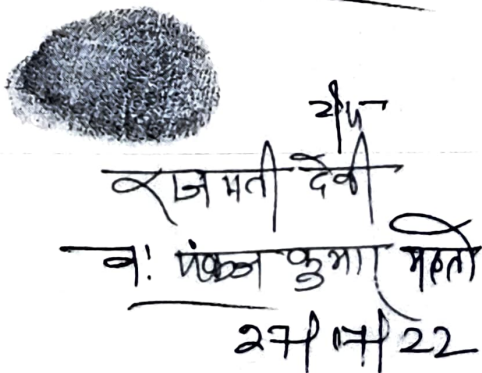 राजमती देवी
व: पंकज कुमार महतो
27/07/22